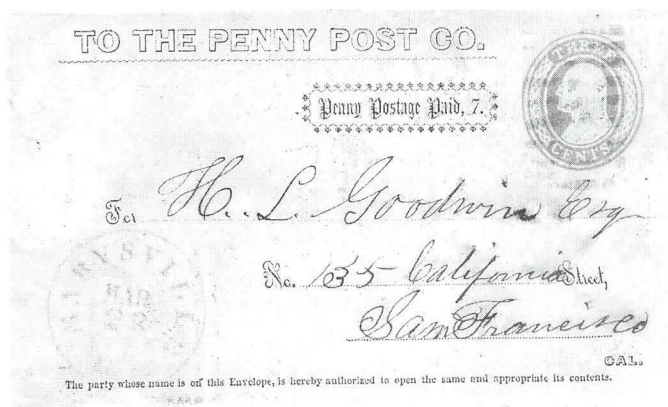 TO THE PENNY POST CO.
THREE
CENTS
Penny Postage Paid, 7.
For H. L. Goodwin Esq
No. 135 California Street,
San Francisco
CAL.
MARYSVILLE
MAR
22
The party whose name is on this Envelope, is hereby authorized to open the same and appropriate its contents.
RARE